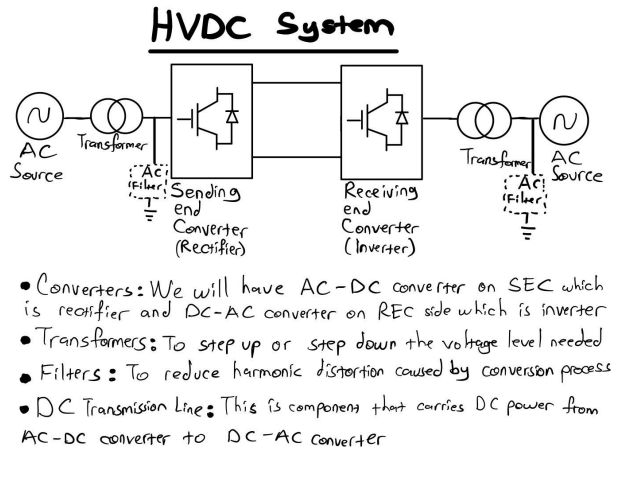 HVDC System
AC
Source
Transformer
AC
Filter
Sending
end
Converter
(Rectifier)
Receiving
end
Converter
(Inverter)
Transformer
AC
Filter
AC
Source
• Converters: We will have AC-DC converter on SEC which
is rectifier and DC-AC converter on REC side which is inverter
• Transformers: To step up or step down the voltage level needed
• Filters: To reduce harmonic distortion caused by conversion process
• DC Transmission Line: This is component that carries DC power from
AC-DC converter to DC-AC converter